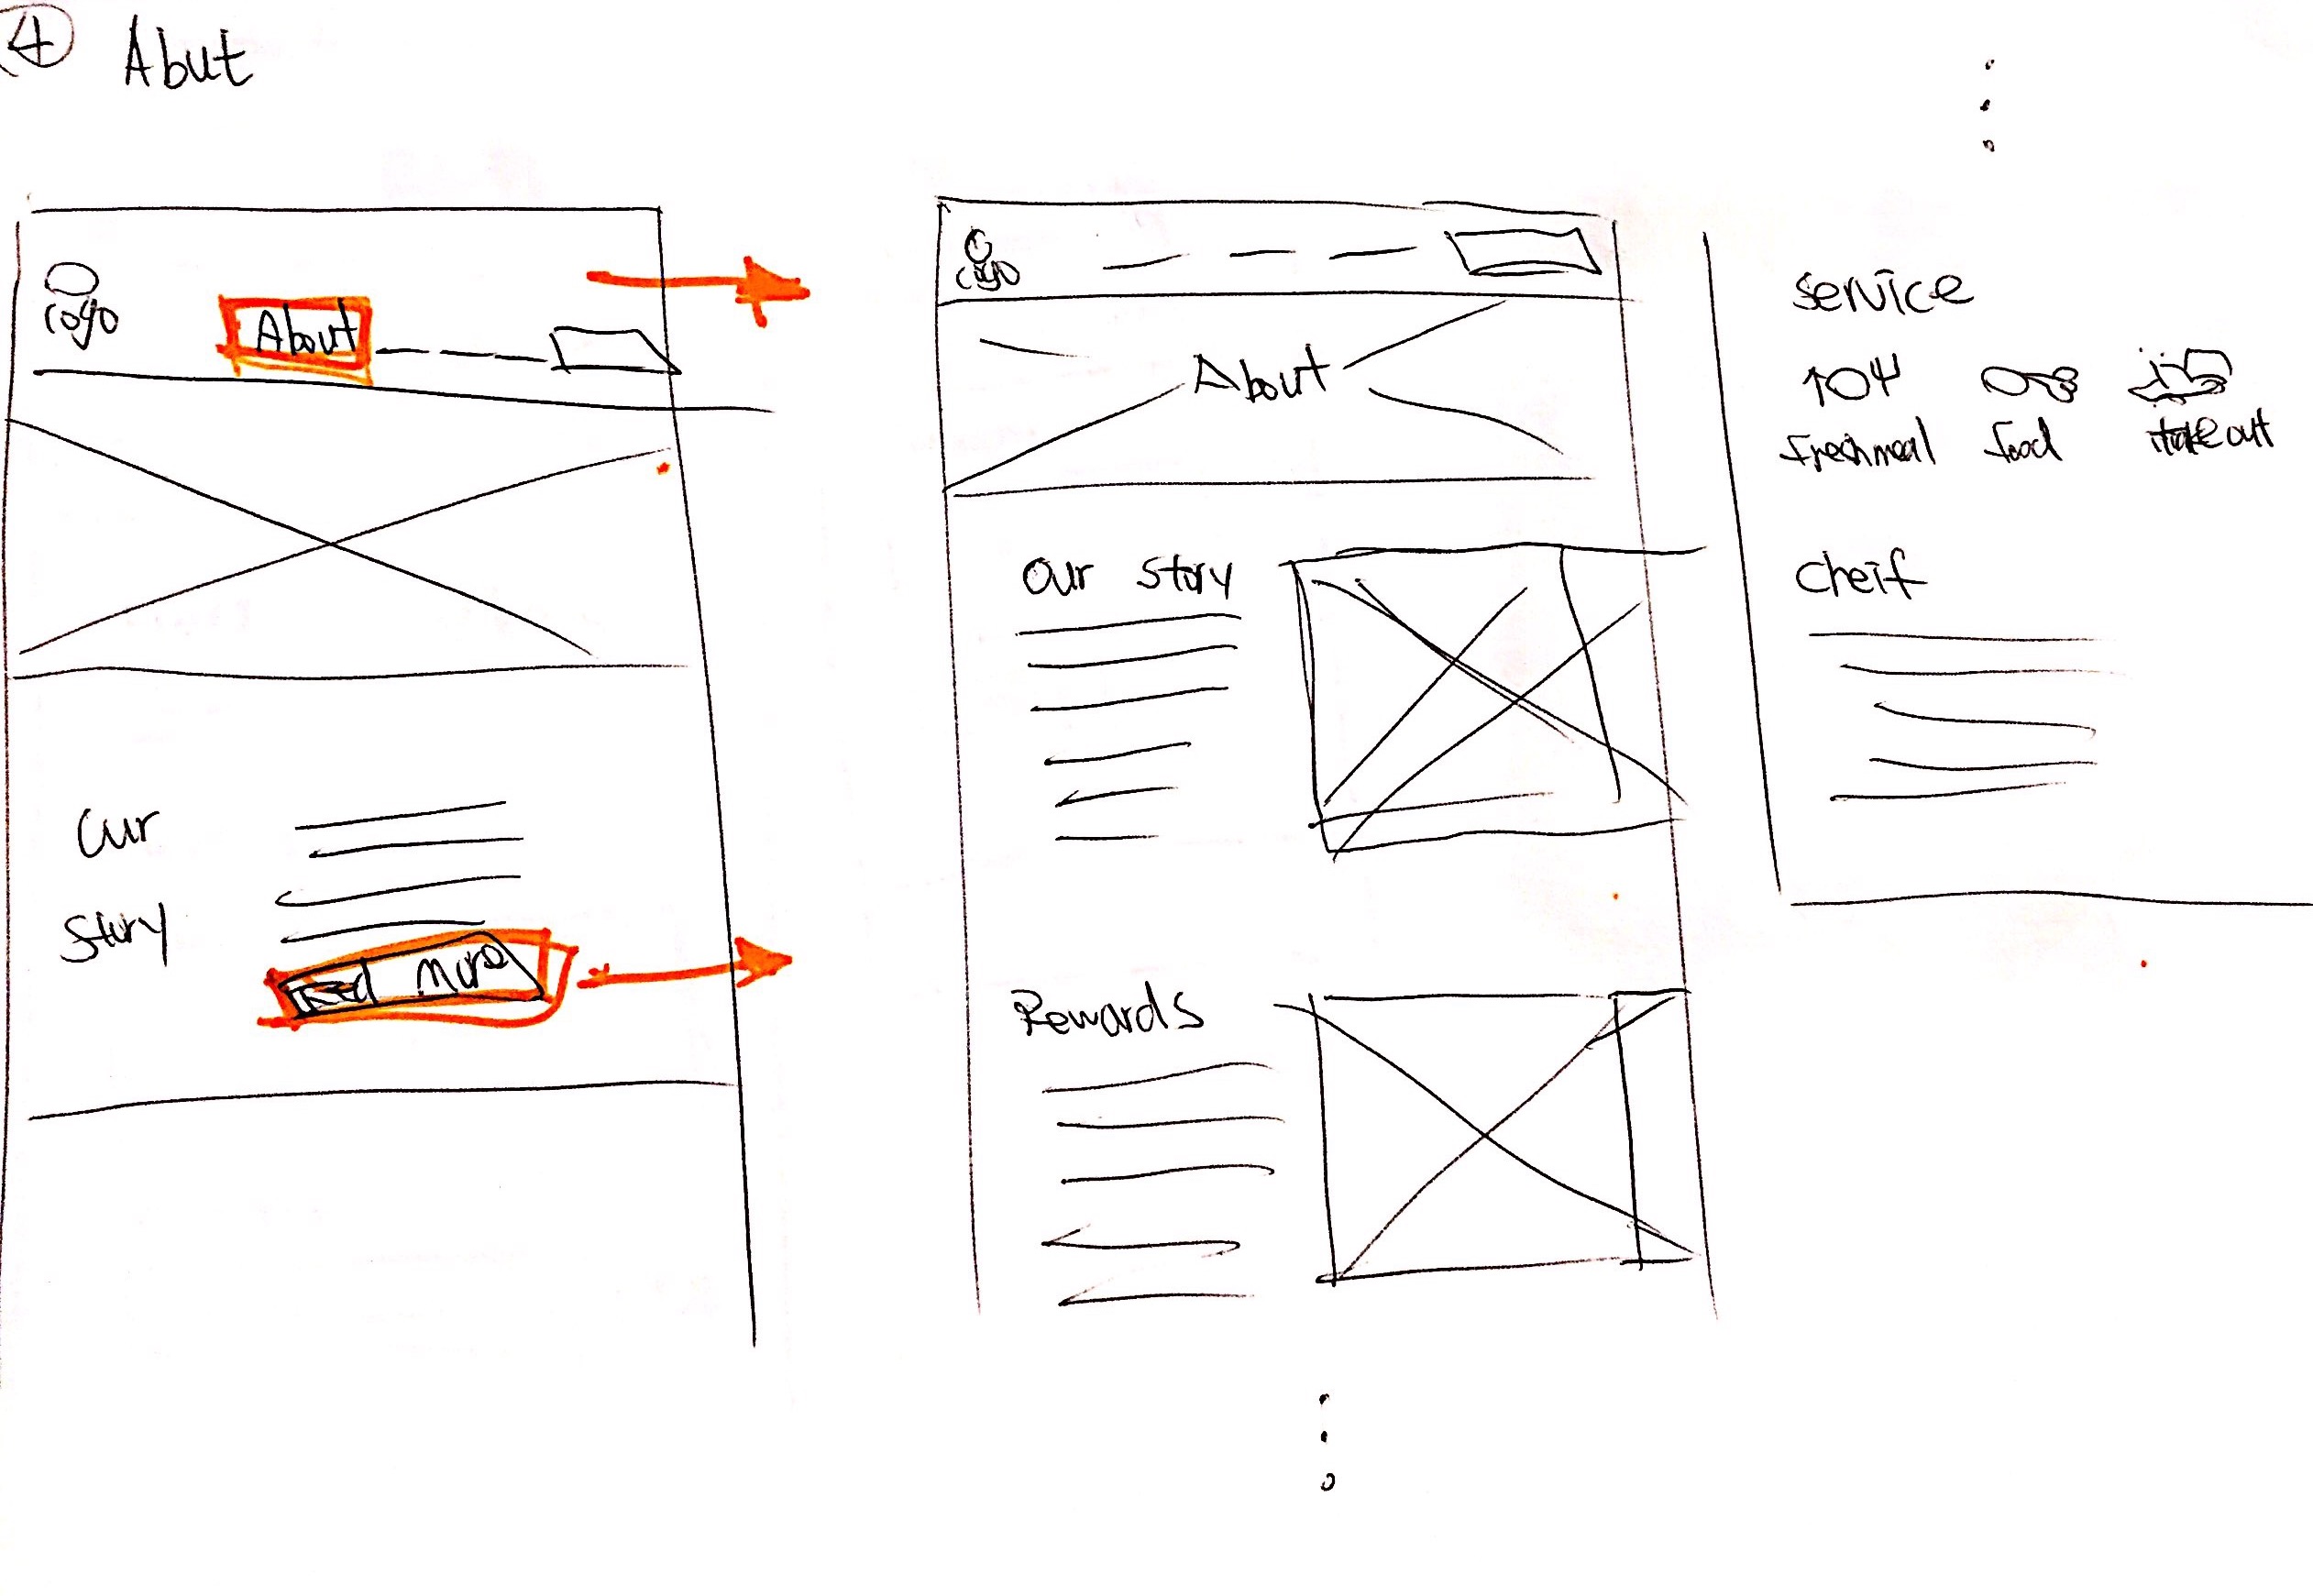 4 Abut
Logo
About
Our
Story
Read More
Logo
About
Our Story
Rewards
Service
Freshmeal food takeout
Cheif